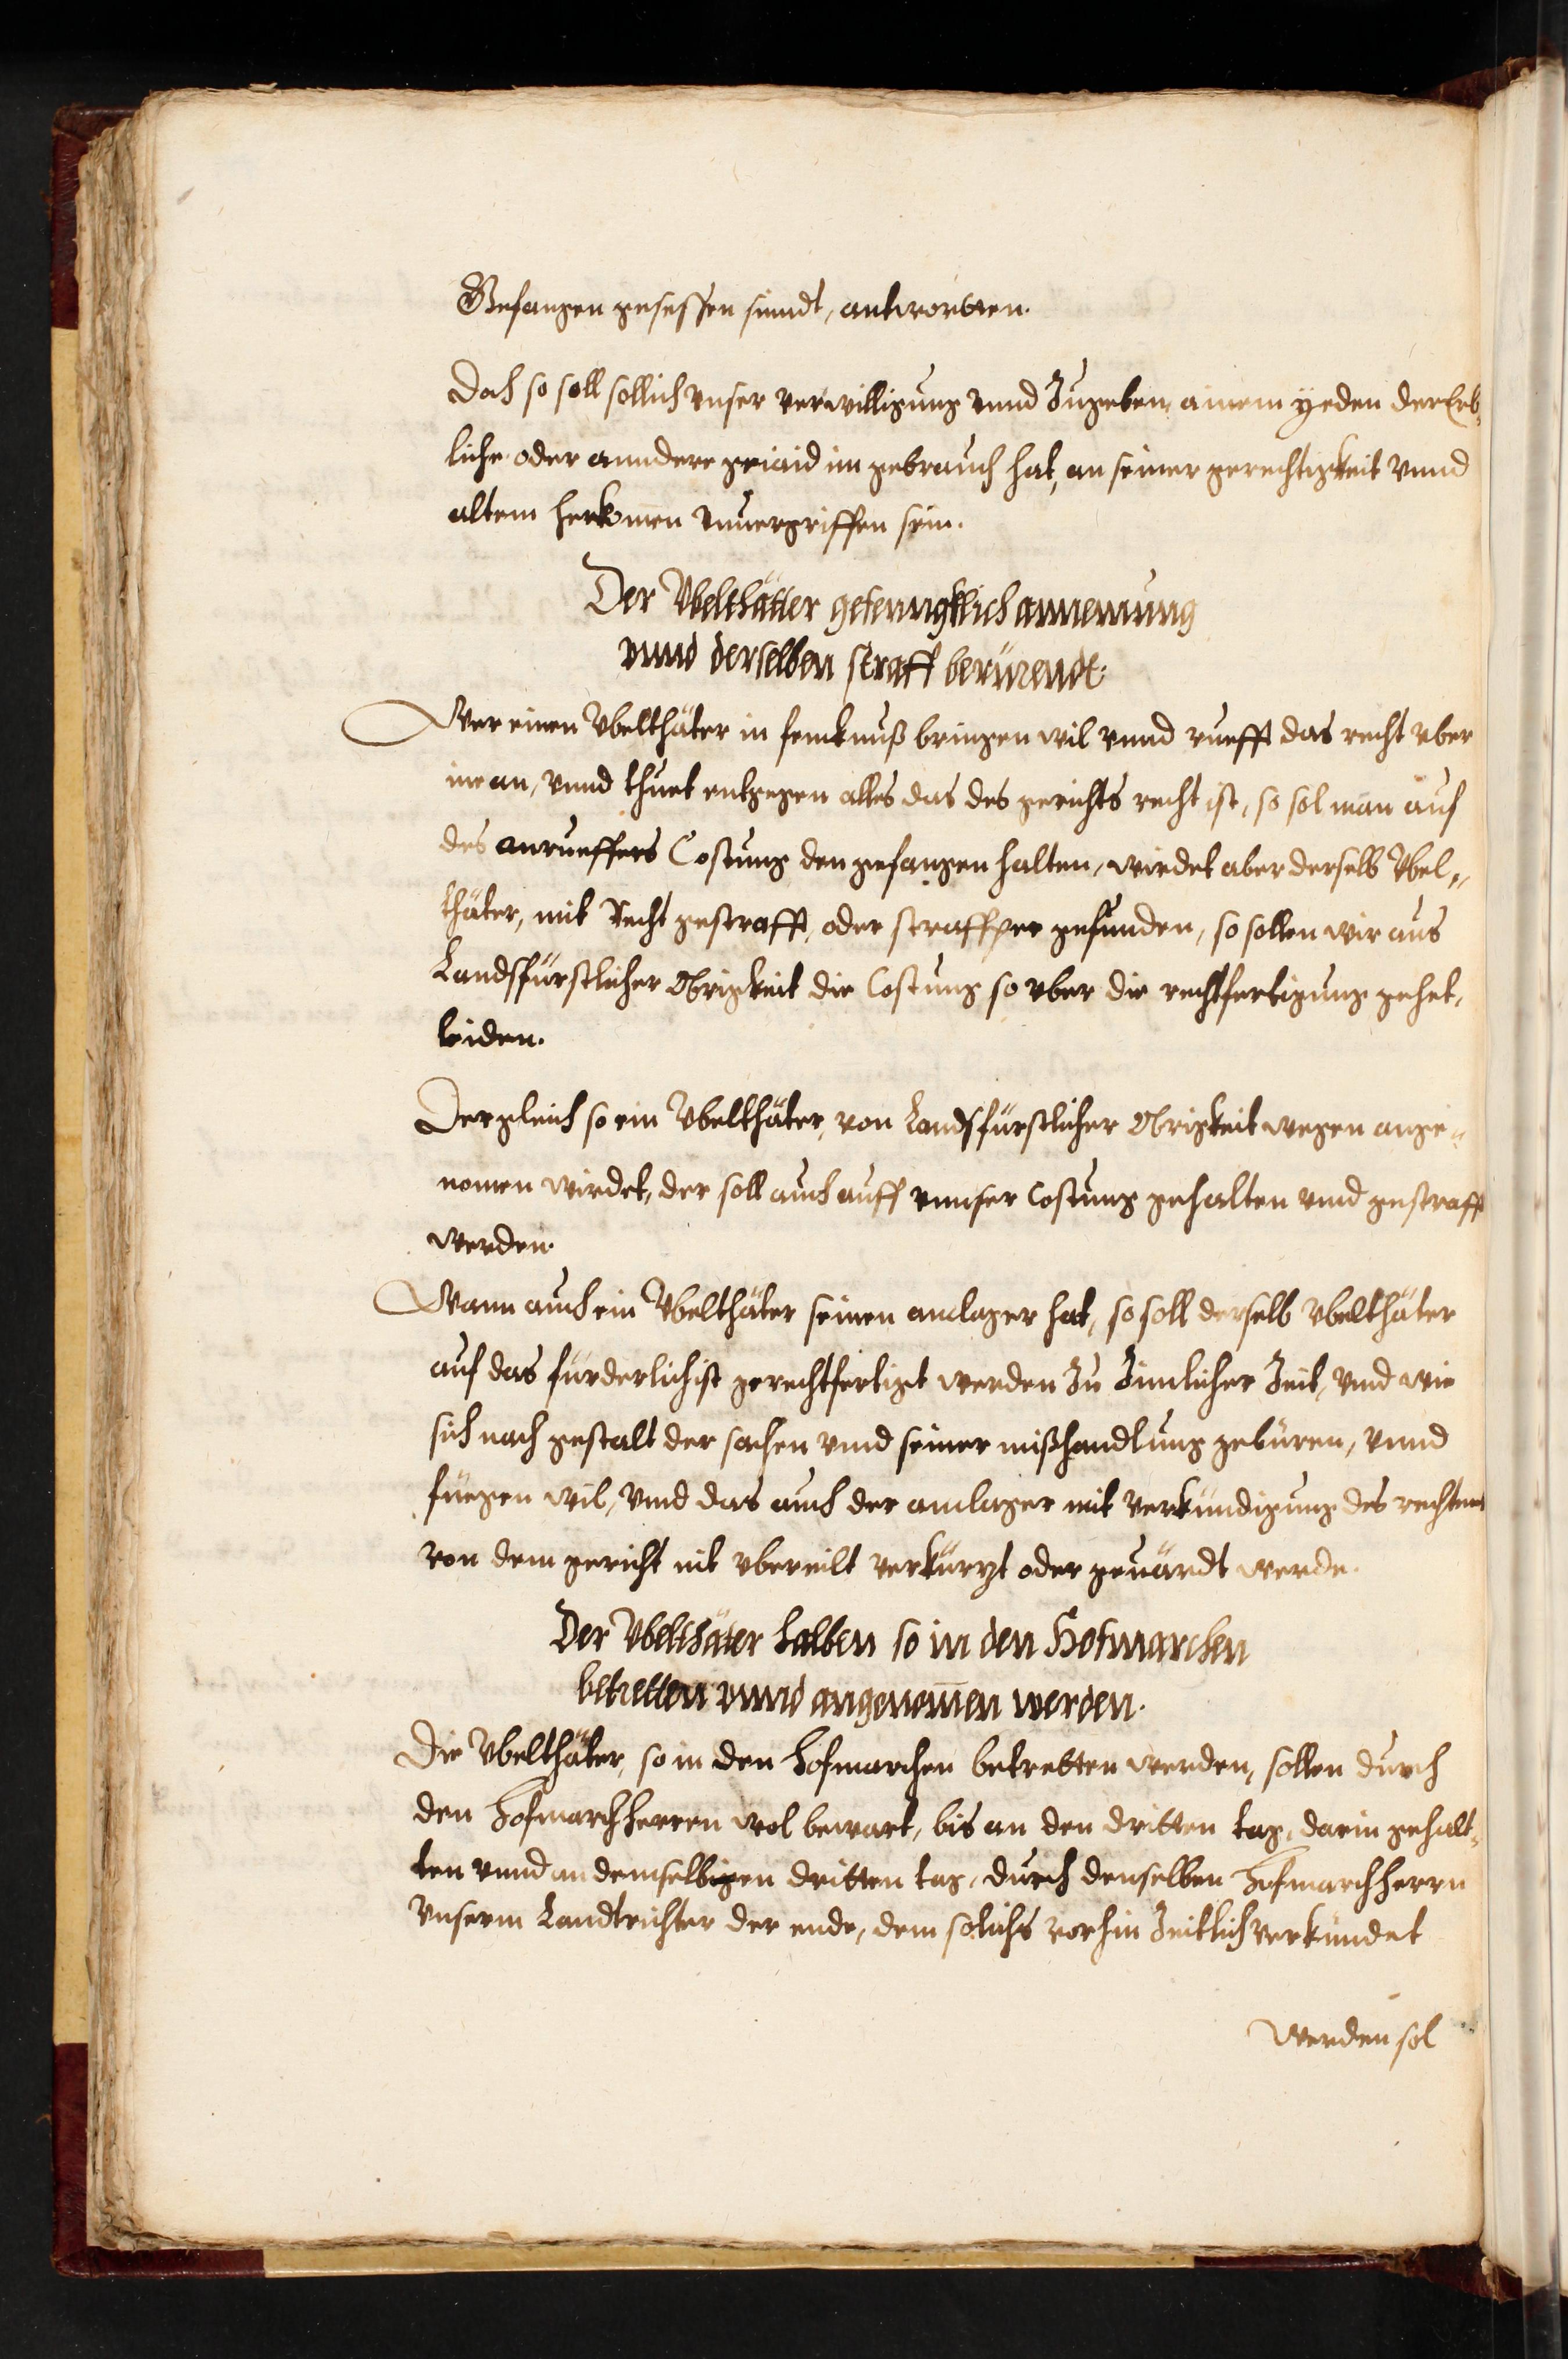 Gefangen gesessen sinndt, antwortten.
Doch so soll sollich vnser verwilligung vnnd Zugeben, ainem yeden der Erb¬
liche oder anndere geiaid im gebrauch hat, an seiner gerechtigkeit vnnd
altem herkomen vnuergriffen sein.
Der Vbelthätter gefenngklich annemung
vnnd derselben straff berürendt.
Wer einen Vbelthäter in fencknuß bringen wil vnnd ruefft das recht vber
ine an, vnnd thuet entgegen alles das des gerichts recht ist, so sol man auf
des anrueffers Costung den gefangen halten, wirdet aber derselb Vbel¬
thäter, mit Recht gestrafft, oder straffper gefunden, so sollen wir aus
Landsfürstlicher Obrigkeit die Costung so vber die rechtfertigung gehet,
leiden.
Dergleich so ein Vbelthäter, von Landsfürstlicher Obrigkeit wegen ange¬
nomen wirdet, der soll auch auff vnnser Costung gehalten vnd gestrafft
werden.
Wann auch ein Vbelthäter seinen anclager hat, so soll derselb vbelthäter
auf das fürderlichist gerechtfertigt werden Zu Zimlicher Zeit, vnd wie
sich nach gestalt der sachen vnd seiner mißhandlung gebüren, vnnd
füegen wil, vnd das auch der anclager mit verkündigung des rechtens
von dem gericht nit vbereilt verkürtzt oder geuärdt werde.
Der Vbelthäter halben so in den Hofmarchen
betretten vnnd angenomen werden.
Die Vbelthäter, so in den Hofmarchen betretten werden, sollen durch
den Hofmarchherren wol bewart, bis an den dritten tag, darin gehalt¬
ten vnnd an demselbigen dritten tag, durch denselben Hofmarchherrn
vnserm Landtrichter der ende, dem solichs vorhin Zeitlich verkündet
werden sol